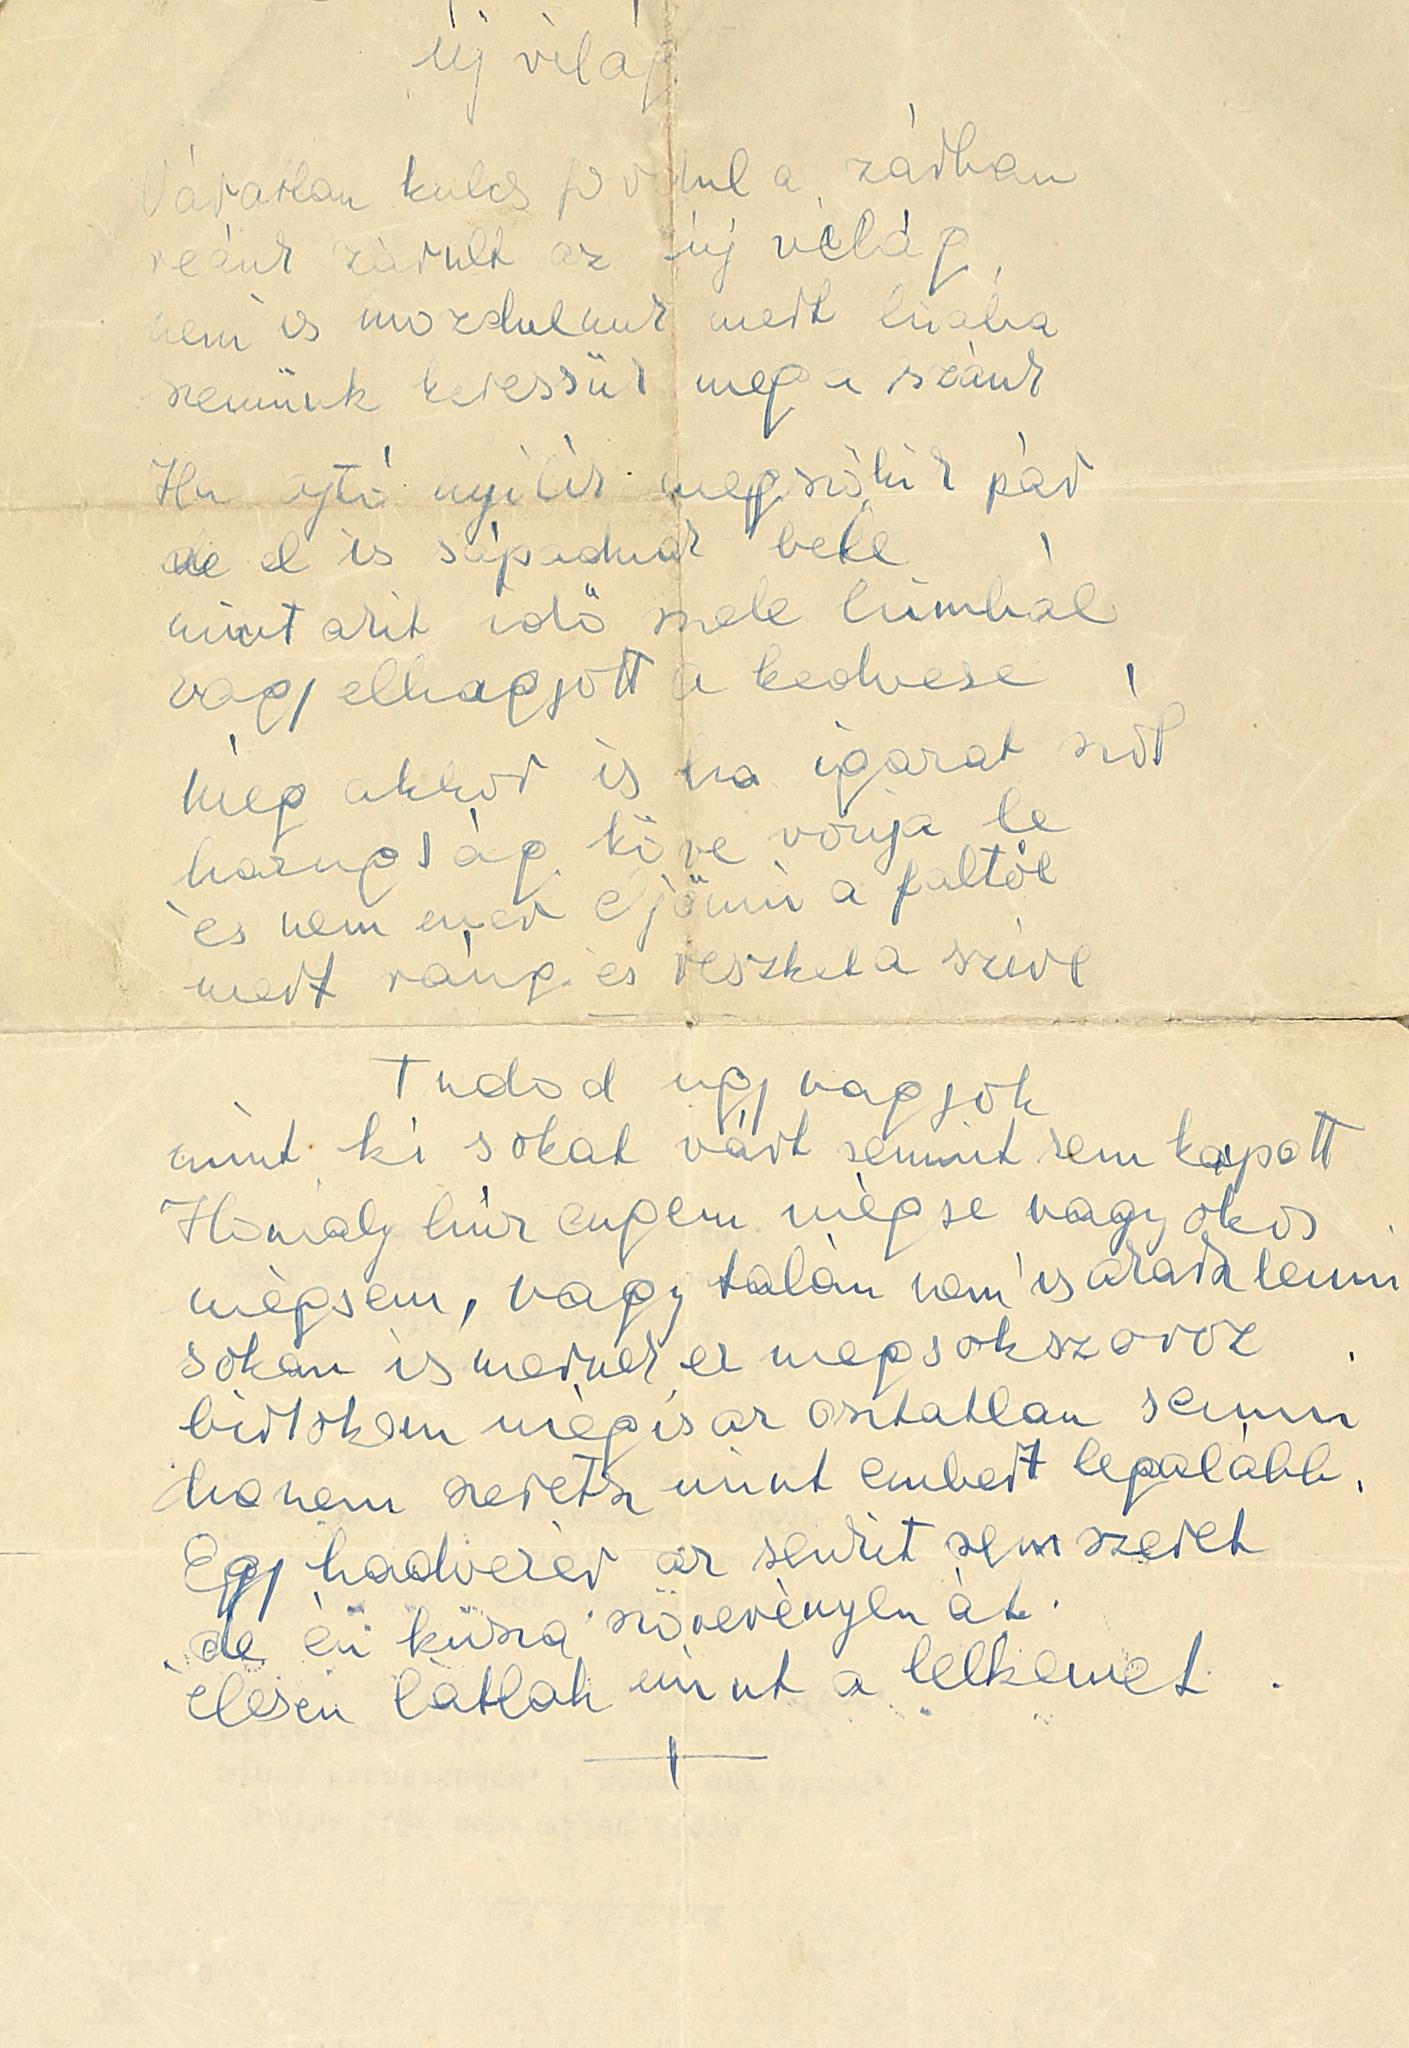 Új világ
Váratlan kulcs fordul a zárban
reánk zárult az új világ,
nem is mozdulunk mert hiába
szemünk keressük meg a szánk
Ha ajtó nyílik megszökik pár
de el is sápadnak bele
mint akit idő szele himbál
vagy elhagyott a kedvese
még akkor is ha igazat szól
hazugság köve vonja le
és nem mer eljönni a faltól
mert ráng és reszket a szíve
Tudod ugy vagyok
mint ki sokat várt semmit sem kapott
Homály hív engem mégse vagyok os
mégsem, vagy talán nem is akarsz lenni
sokan ismernek ez megsokszoroz
birtokom mégis az osztatlan semmi
ha nem szeretsz mint embert legalább.
Egy hadvezér az senkit sem szeret
de én kusza szövevényen át
élesen látlak mint a lelkemet.